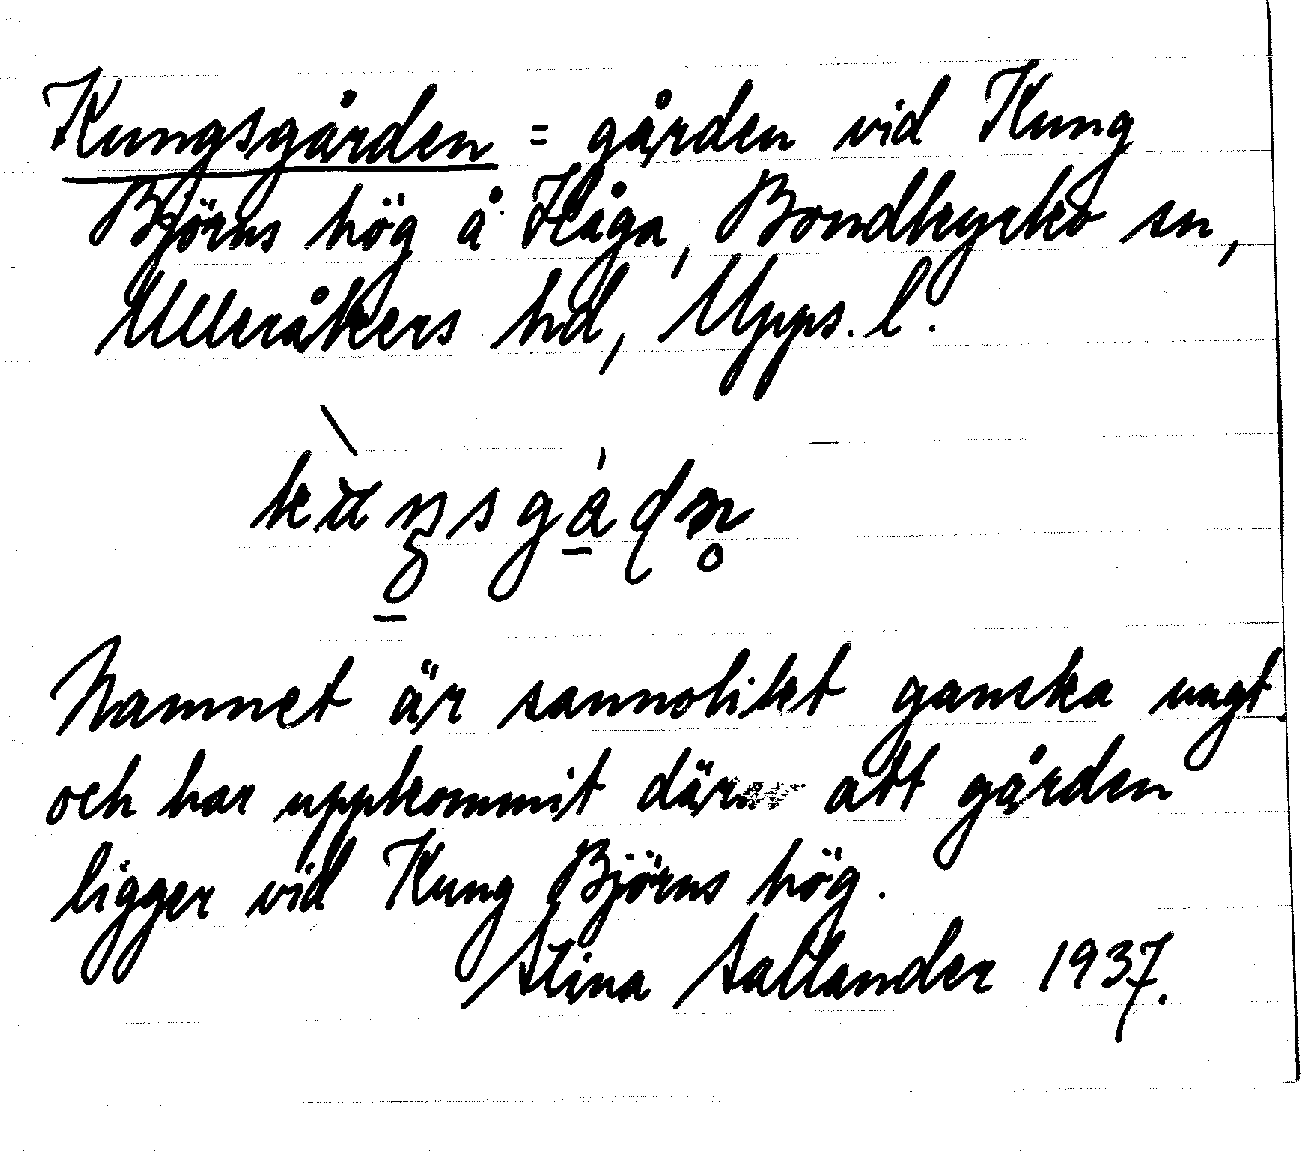 Kungsgården = gården vid Kung
Björns hög å Håga, Bondkyrko sn,
Ulleråkers hd, Upps. l.
Namnet är sannolikt ganska ungt
och har uppkommit därav att gården
ligger vid Kung Björns hög.
Stina Sallander 1937.